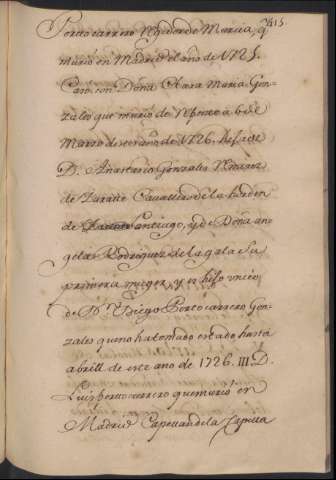 415
Portocarrero Regidor de Murcia, q
murio en Madrid el año de 1725.
Caso con Doña Clara Maria Gon-
zales que murio de Repente a 6 de
Marzo de este año de 1726, hija de
D. Anastasio Gonzales
de Cavallero de la horden
de Santiago, y de Doña an-
gela Rodriguez de la gala su
primera muger, y es hijo unico
de D. Diego Portocarrero Gon-
zales que no ha tomado estado hasta
abrill de este año de 1726. III. D.
Luis portocarrero que murio en
Madrid Capellan de la Capilla